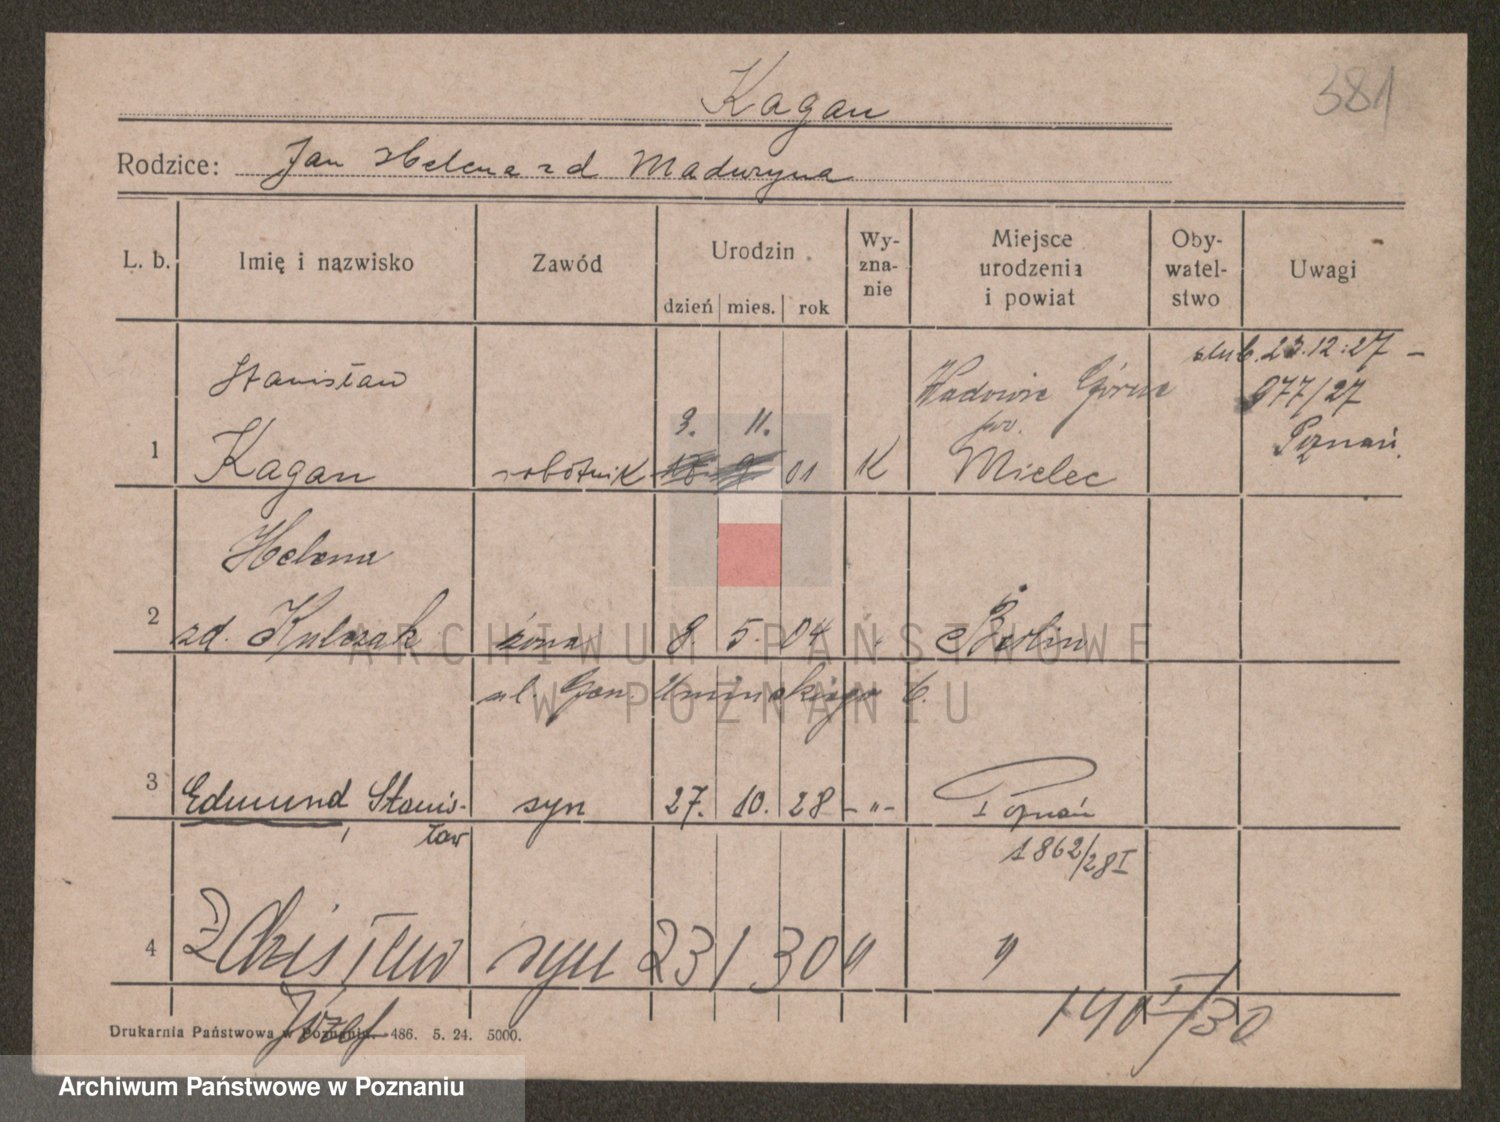 381
Kagan
Rodzice: Jan Helena zd Maduryna
L. b. Imię i nązwisko Zawód Urodzin dzień mies. rok Wy-zna-nie Miejsce urodzenia i powiat Oby-watel-stwo Uwagi
ślub. 23.12.27 -
977/27
Poznań.
Stanisław
Wadowice Górne
pow.
9. 11.
1 Kagan robotnik 01 K Mielec
Helena
2 zd. Kulczak żona 8 5. 04 " Berlin
ARCHIWUM PAŃSTWOWE
ul. Gen. Umińskiego 6.
W POZNANIU
3 Edmund, Stanis- syn 27. 10. 28 -"- Poznań
ław
1862/28 I
4 Zdzisław syn 23 1 30 " "
Józef
140 I/30
Drukarnia Państwowa w Poznaniu. 486. 5. 24. 5000.
Archiwum Państwowe w Poznaniu